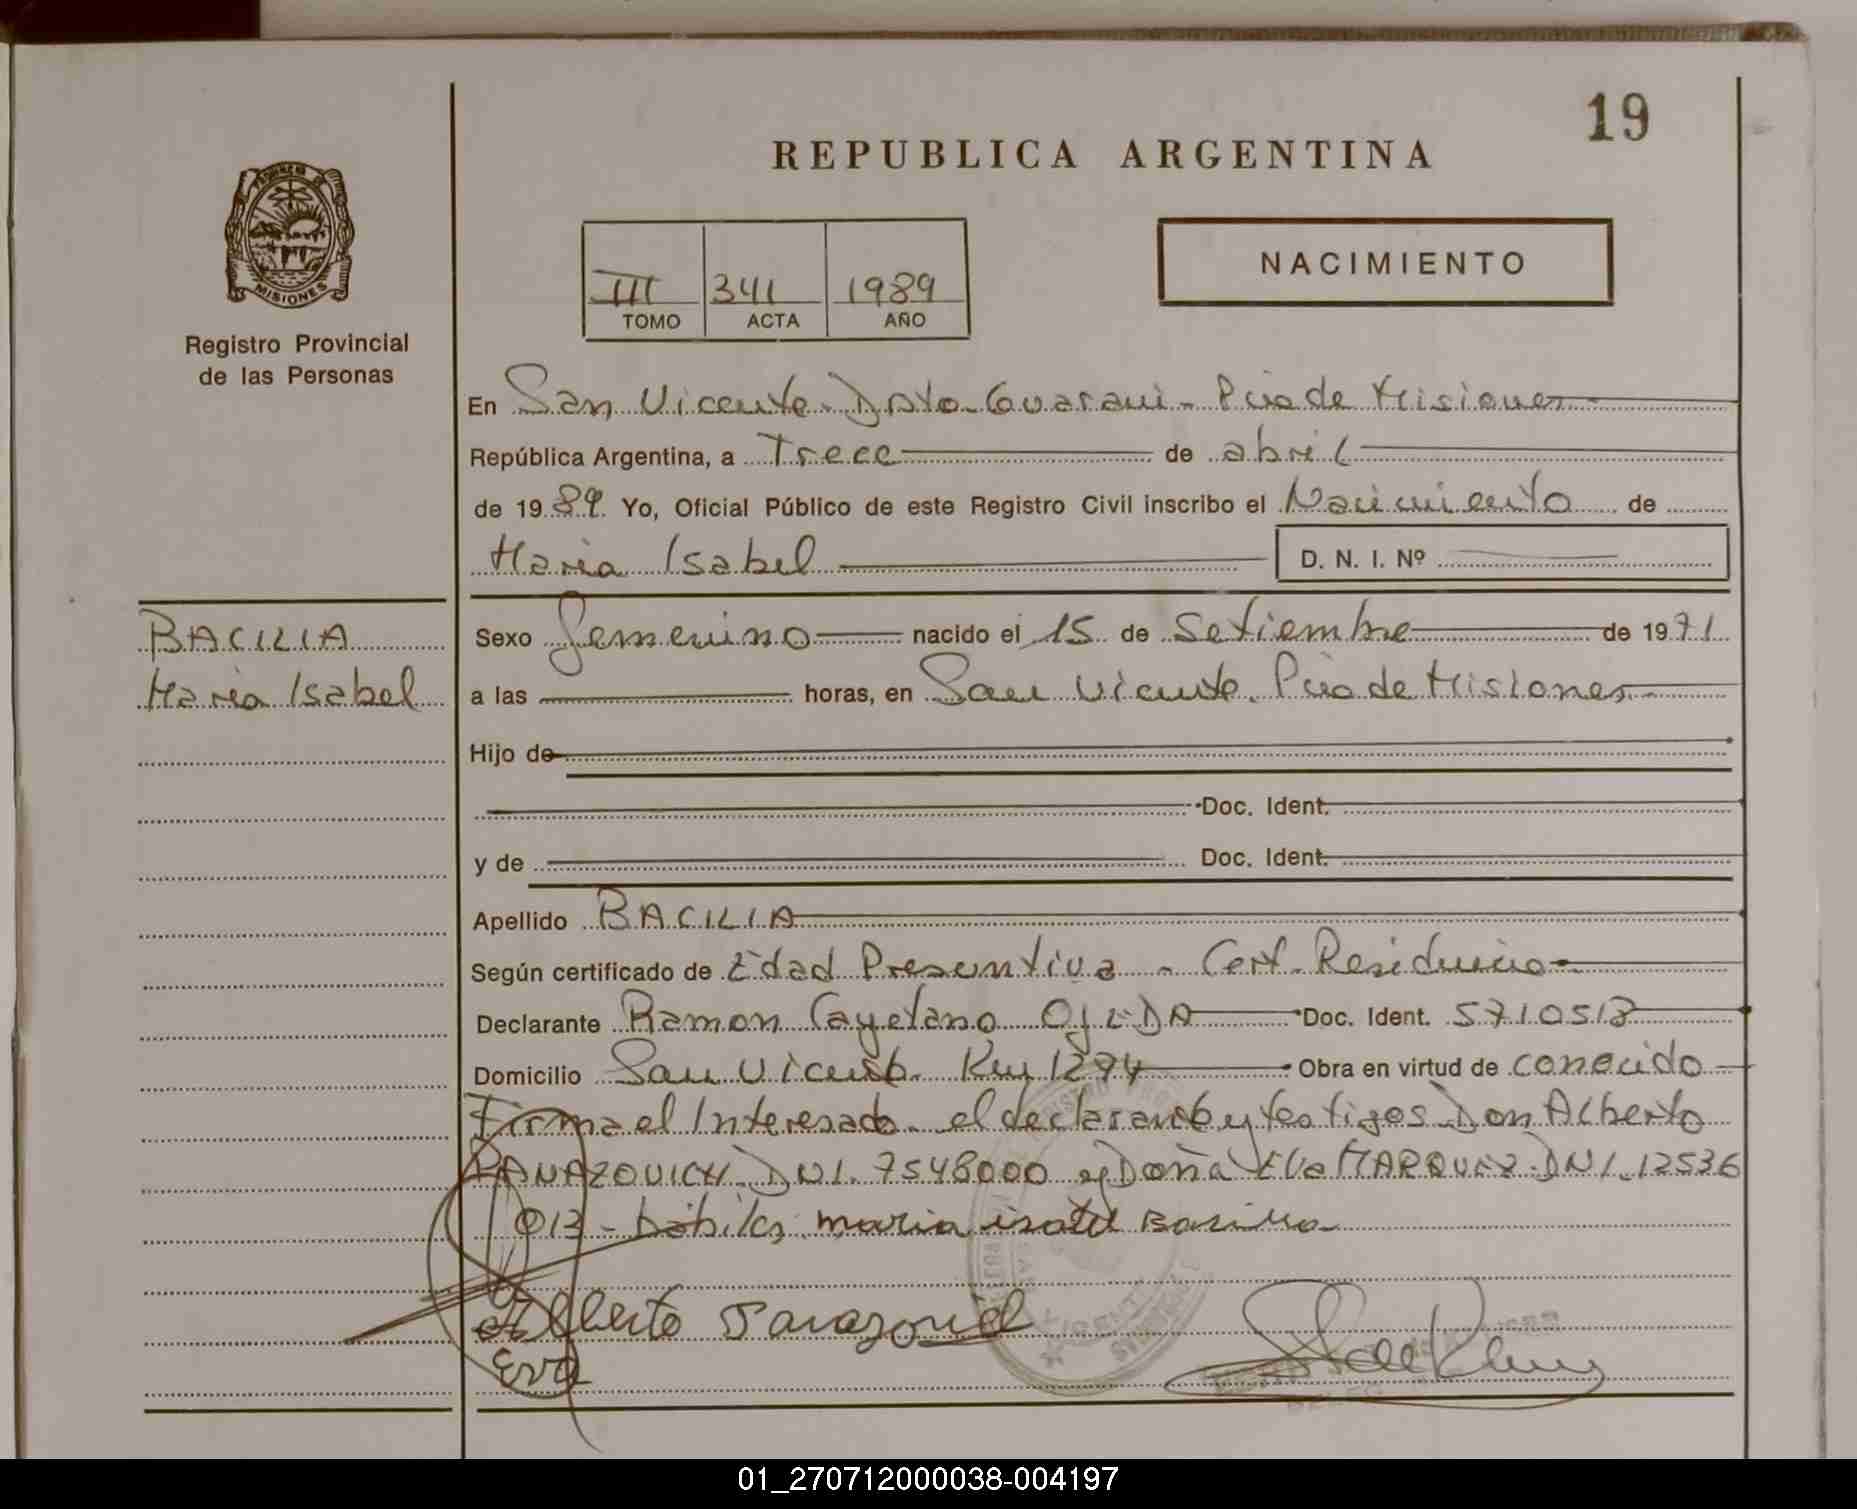 19
REPUBLICA ARGENTINA
PROVINCIA DE
MISIONES
Registro Provincial
de las Personas
III 341 1989
TOMO ACTA AÑO
NACIMIENTO
En San Vicente - Dpto - Guarani - Pcia de Misiones
República Argentina, a Trece de abril
de 1989 Yo, Oficial Público de este Registro Civil inscribo el Nacimiento de
Maria Isabel D. N. I. Nº
BACILIA
Maria Isabel
Sexo femenino nacido el 15 de Setiembre de 1971
a las horas, en San Vicente. Pcia de Misiones
Hijo de
Doc. Ident.
y de Doc. Ident.
Apellido BACILIA
Según certificado de Edad Presuntiva - Cert. Residencia
Declarante Ramon Cayetano OJEDA Doc. Ident. 5710518
Domicilio San Vicente Km 1274 Obra en virtud de conocido
Firma el Interesado - el declarante y testigos Don Alberto
DNI. 7548000 y Doña Eva MARQUEZ - DNI. 12536
013 - habiles maria isabel
Alberto
Eva
01_270712000038-004197